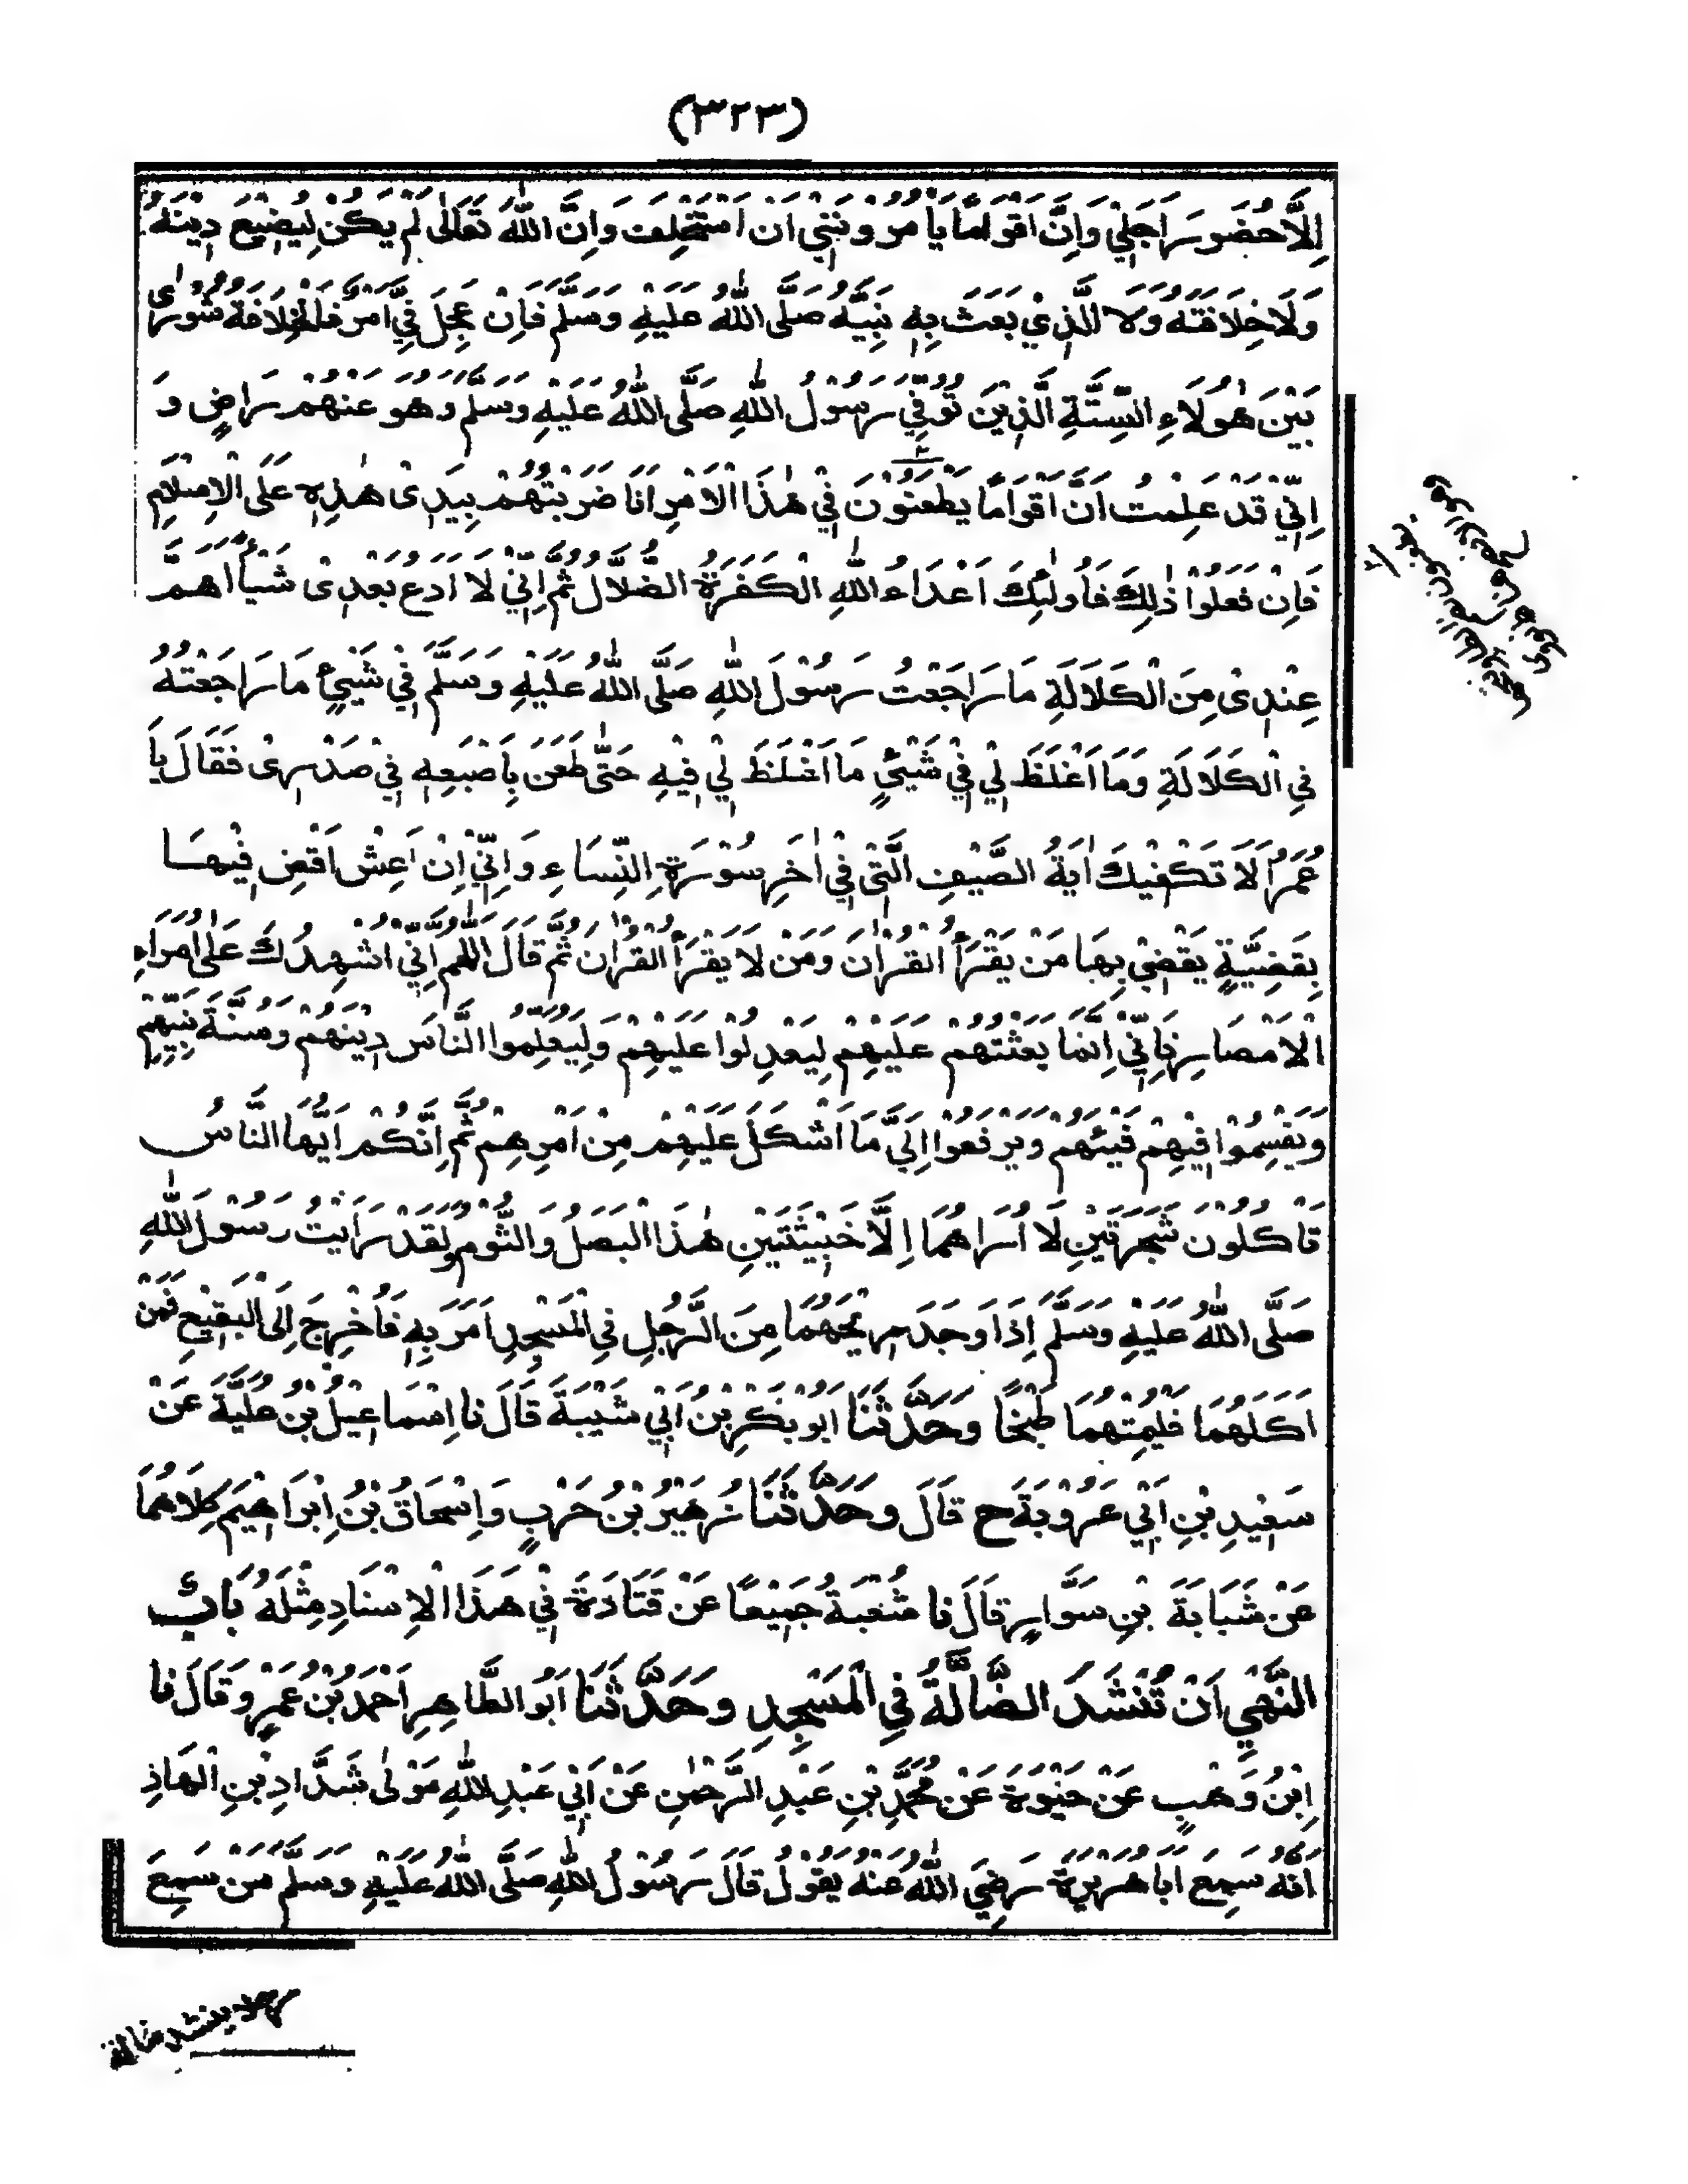 (٣٢٣)
اِلَّا حُضُوْرَ اَجَلِيْ وَاِنَّ اَقْوَامًا يَأْمُرُوْنَنِيْ اَنْ اَسْتَخْلِفَ وَاِنَّ اللّٰهَ تَعَالٰى لَمْ يَكُنْ لِيُضِيْعَ دِيْنَهُ
وَلَا خِلَافَتَهُ وَلَا الَّذِيْ بَعَثَ بِهٖ نَبِيَّهُ صَلَّى اللّٰهُ عَلَيْهِ وَسَلَّمَ فَاِنْ عَجِلَ فِيَّ اَمْرٌ فَالْخِلَافَةُ شُوْرٰى
بَيْنَ هٰؤُلَاءِ السِّتَّةِ الَّذِيْنَ تُوُفِّيَ رَسُوْلُ اللّٰهِ صَلَّى اللّٰهُ عَلَيْهِ وَسَلَّمَ وَهُوَ عَنْهُمْ رَاضٍ وَ
اِنِّيْ قَدْ عَلِمْتُ اَنَّ اَقْوَامًا يَطْعَنُوْنَ فِيْ هٰذَا الْاَمْرِ اَنَا ضَرَبْتُهُمْ بِيَدِىْ هٰذِهٖ عَلَى الْاِسْلَامِ
فَاِنْ فَعَلُوْا ذٰلِكَ فَاُولٰئِكَ اَعْدَاءُ اللّٰهِ الْكَفَرَةُ الضُّلَّالُ ثُمَّ اِنِّيْ لَا اَدَعُ بَعْدِىْ شَيْأً اَهَمَّ
عِنْدِىْ مِنَ الْكَلَالَةِ مَا رَاجَعْتُ رَسُوْلَ اللّٰهِ صَلَّى اللّٰهُ عَلَيْهِ وَسَلَّمَ فِيْ شَيْئٍ مَا رَاجَعْتُهُ
فِي الْكَلَالَةِ وَمَا اَغْلَظَ لِيْ فِيْ شَيْئٍ مَا اَغْلَظَ لِيْ فِيْهِ حَتّٰى طَعَنَ بِاَصْبَعِهٖ فِيْ صَدْرِىْ فَقَالَ يَا
عُمَرُ اَلَا تَكْفِيْكَ اٰيَةُ الصَّيْفِ الَّتِيْ فِيْ اٰخِرِ سُوْرَةِ النِّسَاءِ وَاِنِّيْ اِنْ اَعِشْ اَقْضِ فِيْهَا
بِقَضِيَّةٍ يَقْضِيْ بِهَا مَنْ يَقْرَأُ الْقُرْاٰنَ وَمَنْ لَا يَقْرَأُ الْقُرْاٰنَ ثُمَّ قَالَ اللّٰهُمَّ اِنِّيْ اُشْهِدُكَ عَلٰى اُمَرَاءِ
الْاَمْصَارِ فَاِنِّيْ اِنَّمَا بَعَثْتُهُمْ عَلَيْهِمْ لِيَعْدِلُوْا عَلَيْهِمْ وَلِيُعَلِّمُوا النَّاسَ دِيْنَهُمْ وَسُنَّةَ نَبِيِّهِمْ
وَيَقْسِمُوْا فِيْهِمْ فَيْئَهُمْ وَيَرْفَعُوْا اِلَيَّ مَا اَشْكَلَ عَلَيْهِمْ مِنْ اَمْرِهِمْ ثُمَّ اِنَّكُمْ اَيُّهَا النَّاسُ
تَأْكُلُوْنَ شَجَرَتَيْنِ لَا اُرَاهُمَا اِلَّا خَبِيْثَتَيْنِ هٰذَا الْبَصَلُ وَالثُّوْمُ وَلَقَدْ رَاَيْتُ رَسُوْلَ اللّٰهِ
صَلَّى اللّٰهُ عَلَيْهِ وَسَلَّمَ اِذَا وَجَدَ رِيْحَهُمَا مِنَ الرَّجُلِ فِي الْمَسْجِدِ اَمَرَ بِهٖ فَاُخْرِجَ اِلَى الْبَقِيْعِ فَمَنْ
اَكَلَهُمَا فَلْيُمِتْهُمَا طَبْخًا وَحَدَّثَنَا اَبُوْ بَكْرِ بْنُ اَبِيْ شَيْبَةَ قَالَ نَا اِسْمَاعِيْلُ بْنُ عُلَيَّةَ عَنْ
سَعِيْدِ بْنِ اَبِيْ عَرُوْبَةَ ح قَالَ وَحَدَّثَنَا زُهَيْرُ بْنُ حَرْبٍ وَاِسْحَاقُ بْنُ اِبْرَاهِيْمَ كِلَاهُمَا
عَنْ شَبَابَةَ بْنِ سَوَّارٍ قَالَ نَا شُعْبَةُ جَمِيْعًا عَنْ قَتَادَةَ فِيْ هَذَا الْاِسْنَادِ مِثْلَهُ بَابُ
النَّهْيِ اَنْ تُنْشَدَ الضَّالَّةُ فِي الْمَسْجِدِ وَحَدَّثَنَا اَبُو الطَّاهِرِ اَحْمَدُ بْنُ عَمْرٍو قَالَ نَا
اِبْنُ وَهْبٍ عَنْ حَيْوَةَ عَنْ مُحَمَّدِ بْنِ عَبْدِ الرَّحْمٰنِ عَنْ اَبِيْ عَبْدِ اللّٰهِ مَوْلٰى شَدَّادِ بْنِ الْهَادِ
اَنَّهُ سَمِعَ اَبَا هُرَيْرَةَ رَضِيَ اللّٰهُ عَنْهُ يَقُوْلُ قَالَ رَسُوْلُ اللّٰهِ صَلَّى اللّٰهُ عَلَيْهِ وَسَلَّمَ مَنْ سَمِعَ
رجلا ينشد ضالة